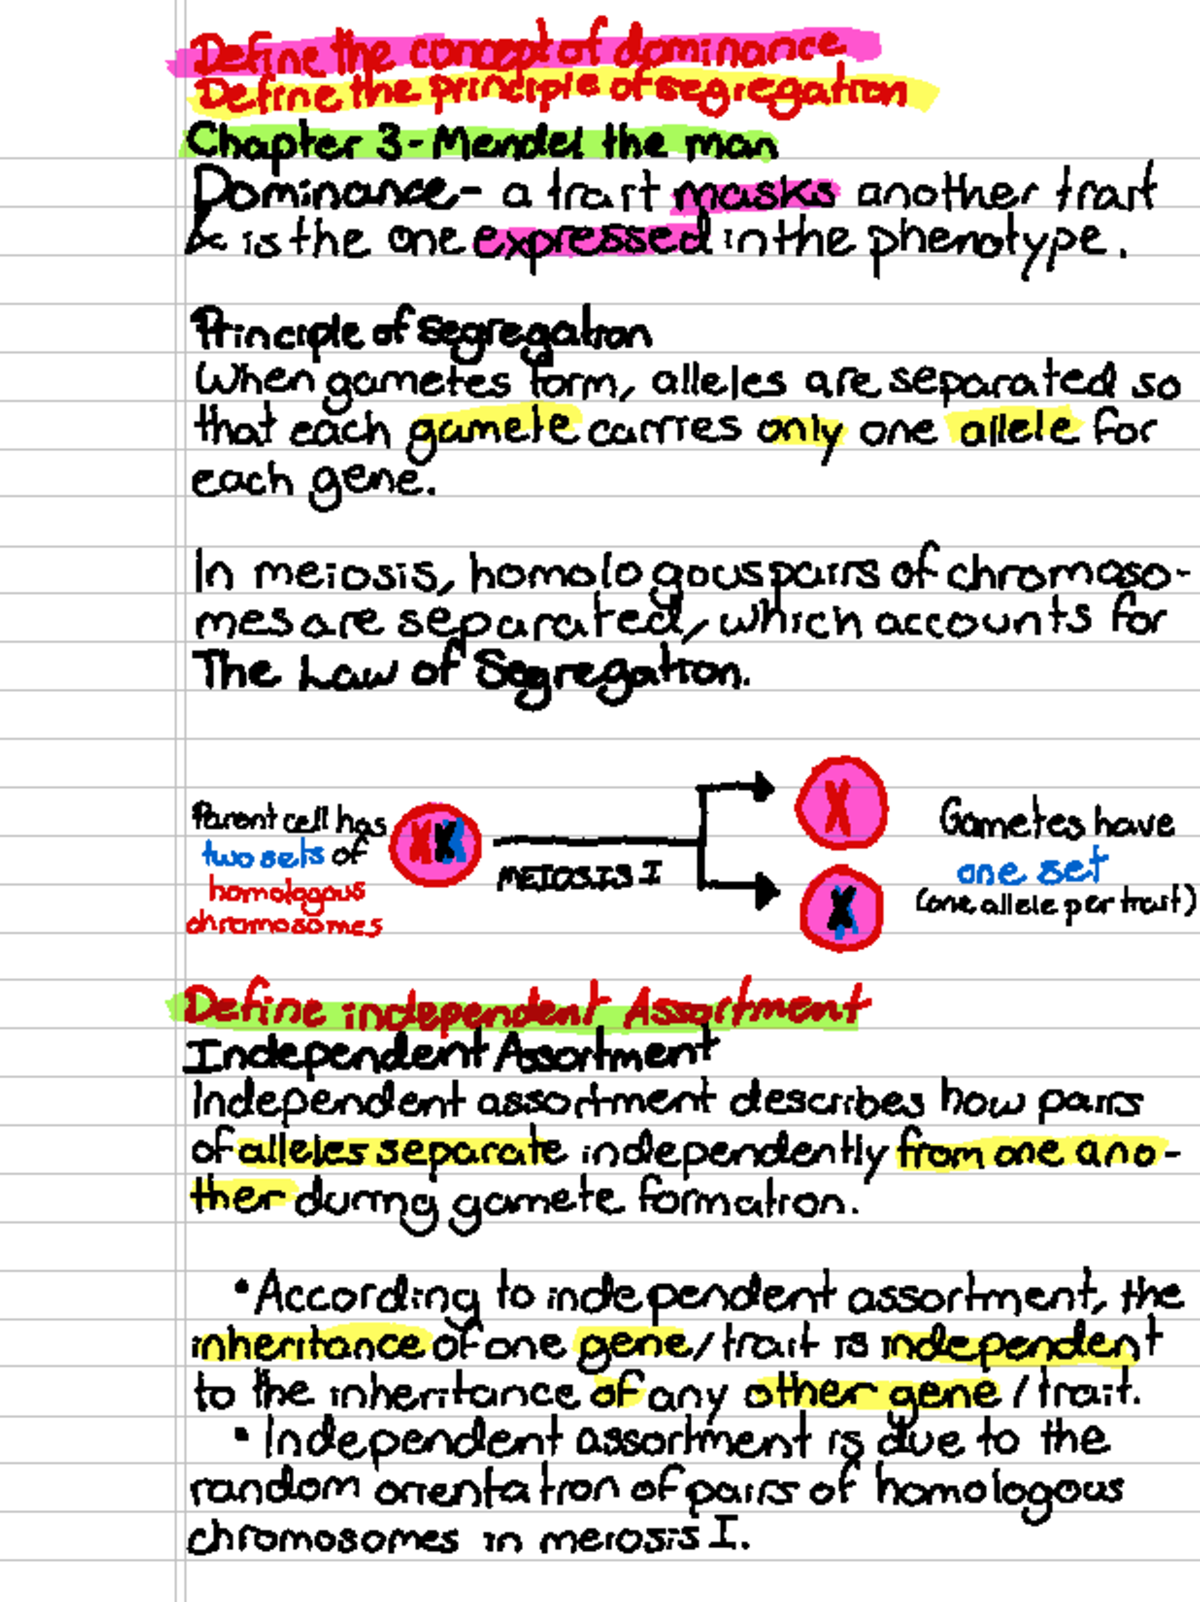 Define the concept of dominance
Define the principle of segregation
Chapter 3- Mendel the man
Dominance- a trait masks another trait
& is the one expressed in the phenotype.
Principle of segregation
When gametes form, alleles are separated so
that each gamete carries only one allele for
each gene.
In meiosis, homologous pairs of chromoso-
mes are separated, which accounts for
The Law of Segregation.
Parent cell has
two sets of
homologous
chromosomes
MEIOSIS I
Gametes have
one set
(one allele per trait)
Define independent Assortment
Independent Assortment
Independent assortment describes how pairs
of alleles separate independently from one ano-
ther during gamete formation.
•According to independent assortment, the
inheritance of one gene/trait is independent
to the inheritance of any other gene/trait.
• Independent assortment is due to the
random orientation of pairs of homologous
chromosomes in meiosis I.